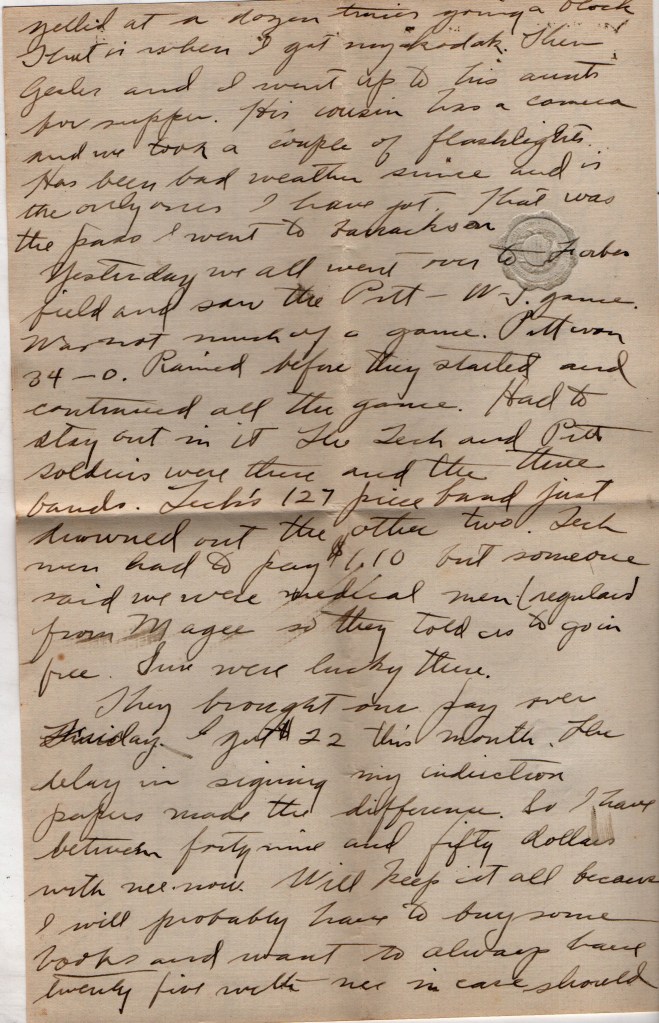 yelled at a dozen times going a block
That is when I got my kodak. Then
Gesler and I went up to his aunts
for supper. His cousin has a camera
and we took a couple of flashlights.
Has been bad weather since and is
the only ones I have got. That was
the pass I went to
Yesterday we all went over to Forbes
field and saw the Pitt – W J. game.
Was not much of a game. Pitt won
34–0. Rained before they started and
continued all the game. Had to
stay out in it The Tech and Pitt
soldiers were there and the three
bands. Tech's 127 piece band just
drowned out the other two. Tech
men had to pay $1.10 but someone
said we were medical men (regulars)
from Magee so they told us to go in
free. Sure were lucky there.
They brought our pay over
I got $22 this month. The
delay in signing my induction
papers made the difference. So I have
between forty nine and fifty dollars
with me now. Will keep it all because
I will probably have to buy some
books and want to always have
twenty five with me in case should